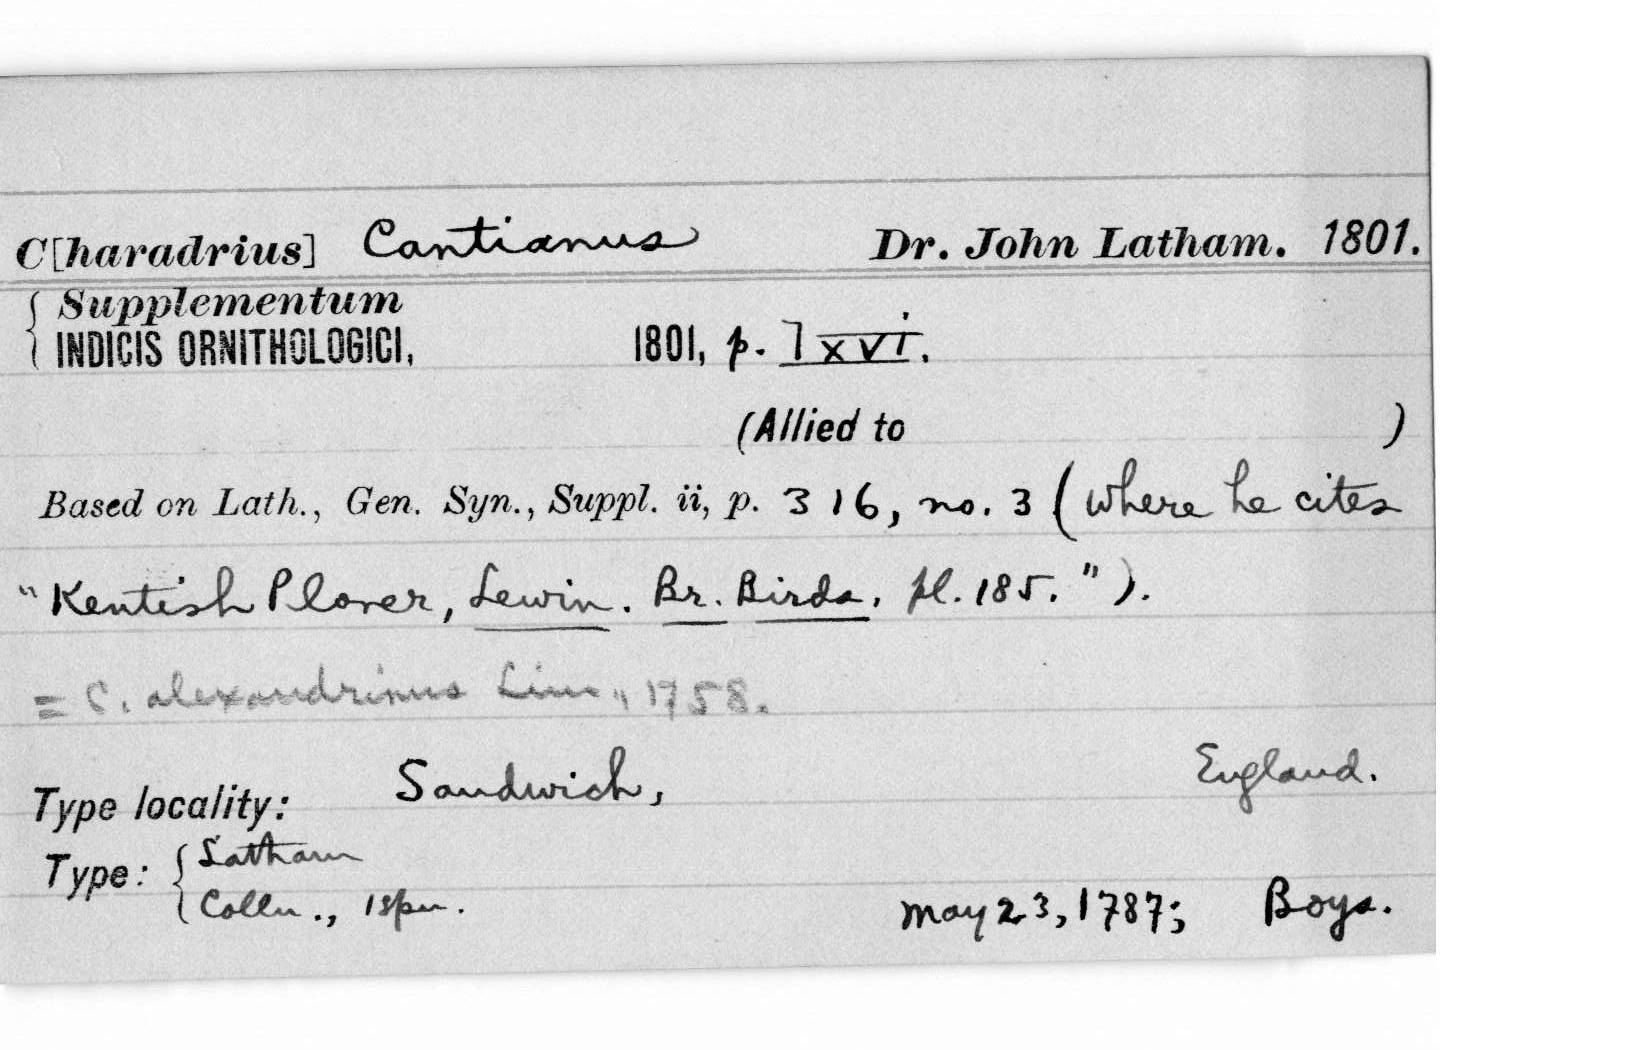 C[haradrius] Cantianus Dr. John Latham. 1801.
Supplementum
INDICIS ORNITHOLOGICI, 1801, p. lxvi.
(Allied to )
Based on Lath., Gen. Syn., Suppl. ii, p. 316, no. 3 (where he cites
"Kentish Plover, Lewin. Br. Birds. pl. 185.").
= C. alexandrinus Linn., 1758.
Type locality: Sandwich, England.
Type: { Latham
Colln., 1 spn. May 23, 1787; Boys.